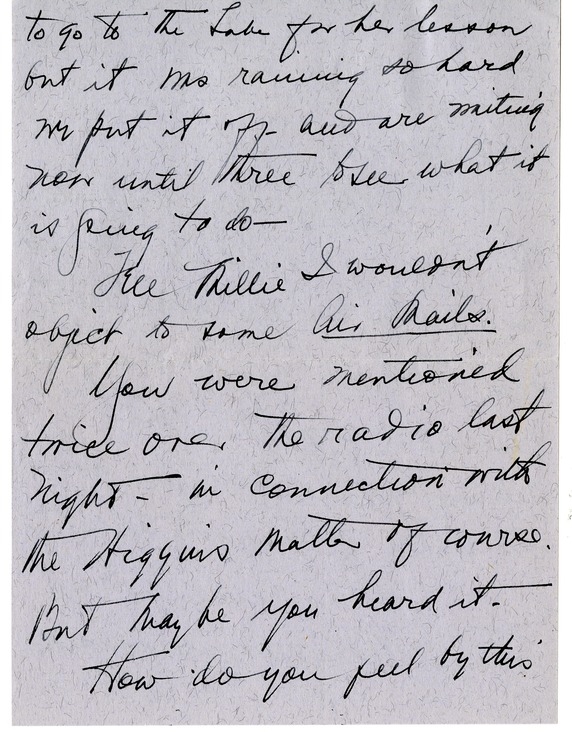 to go to the Lake for her lesson
but it was raining so hard
we put it off - and are waiting
now until three to see what it
is going to do—
Tell Millie I wouldn't
object to some Air Mails.
You were mentioned
twice over the radio last
night - in connection with
the Higgins matter of course.
But maybe you heard it -
How do you feel by this